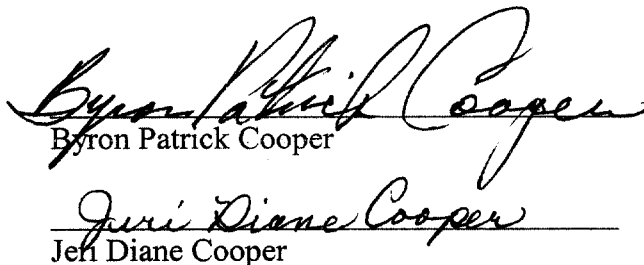 Byron Patrick Cooper
Byron Patrick Cooper
Jeri Diane Cooper
Jeri Diane Cooper